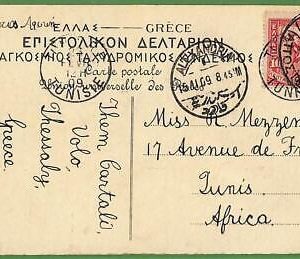 ΕΛΛΑΣ GRÈCE
ΕΠΙΣΤΟΛΙΚΟΝ ΔΕΛΤΑΡΙΟΝ
ΑΓΚΟΣΜΙΟΣ ΤΑΧΥΔΡΟΜΙΚΟΣ ΣΥΝΔΕΣΜΟΣ
Carte postale
Union universelle des Postes
TUNIS
15.XI.09 8.45 M
Them Cartali
Volo
Thessaly,
Greece.
Miss R. Mezzen
17 Avenue de Fr
Tunis,
Africa.